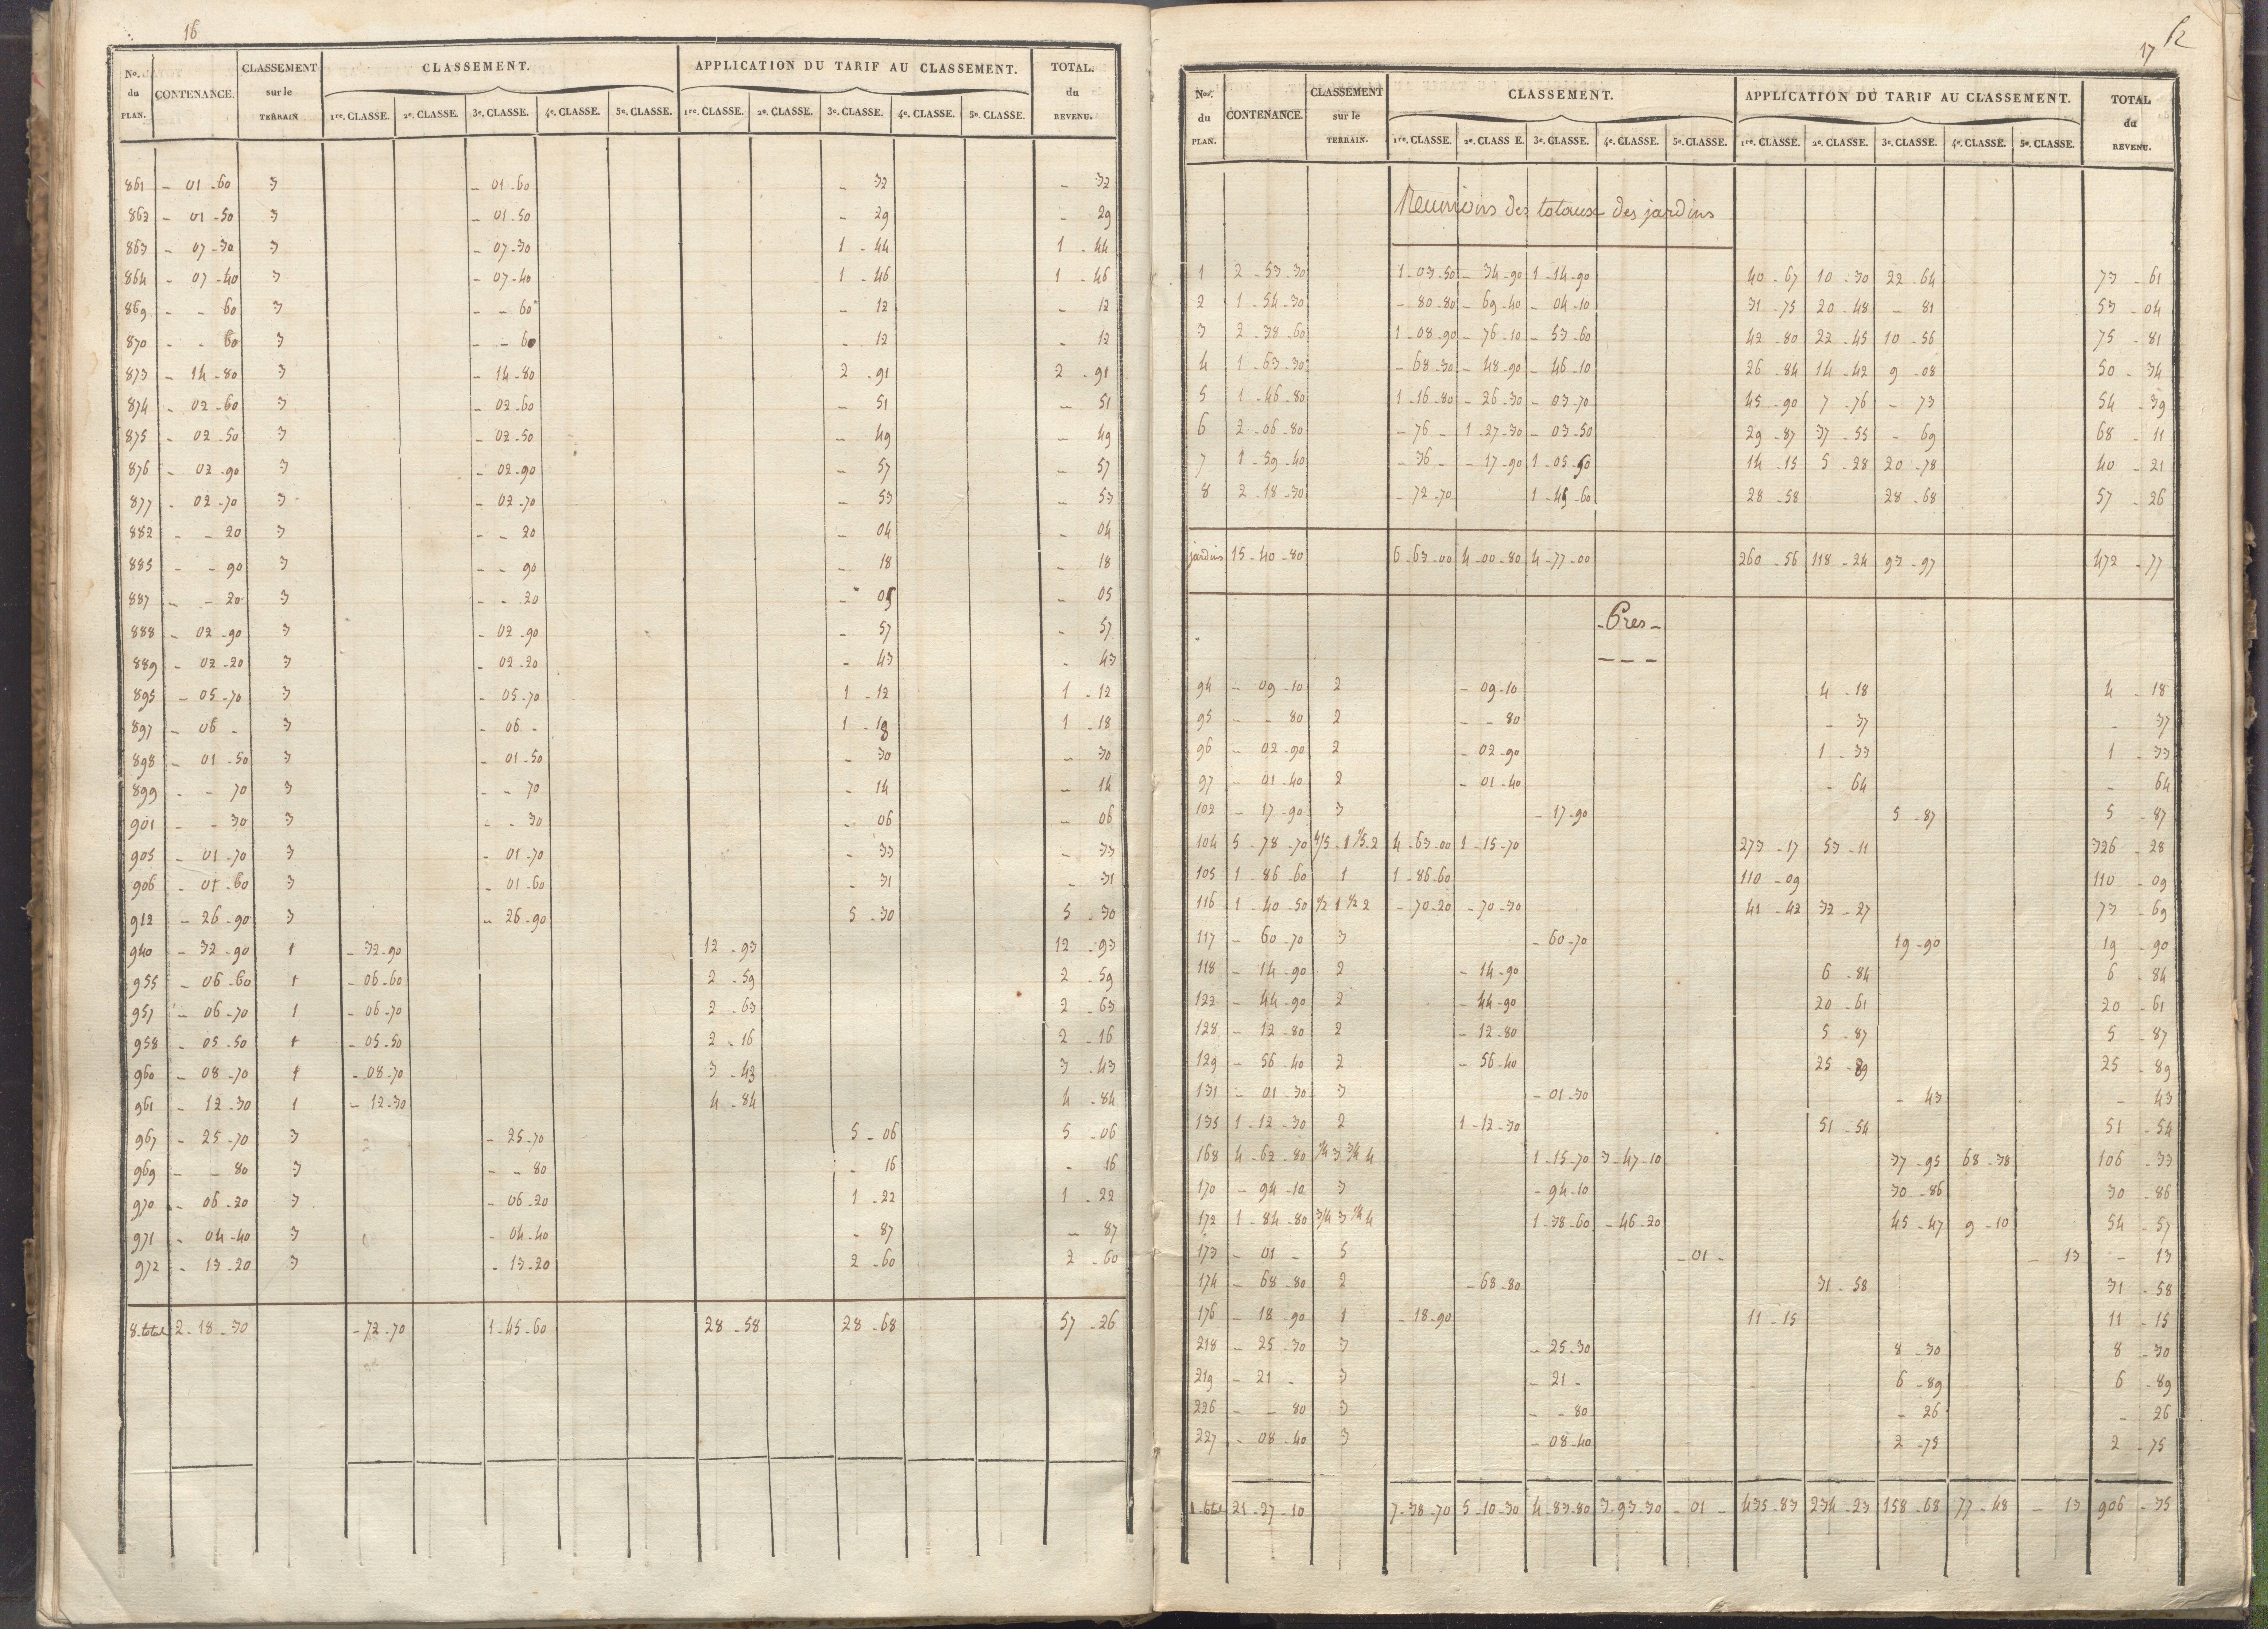 16
Nos. CONTENANCE. CLASSEMENT CLASSEMENT. APPLICATION DU TARIF AU CLASSEMENT. TOTAL.
du sur le du
PLAN. TERRAIN 1re. CLASSE. 2e. CLASSE. 3e. CLASSE. 4e. CLASSE. 5e. CLASSE. 1re. CLASSE. 2e. CLASSE. 3e. CLASSE. 4e. CLASSE. 5e. CLASSE. REVENU.
861 - 01 - 60 3 - 01 - 60 - 32 - 32
862 - 01 - 50 3 - 01 - 50 - 29 - 29
863 - 07 - 30 3 - 07 - 30 1 - 44 1 - 44
864 - 07 - 40 3 - 07 - 40 1 - 46 1 - 46
869 - - 60 3 - - 60 - 12 - 12
870 - - 60 3 - - 60 - 12 - 12
873 - 14 - 80 3 - 14 - 80 2 - 91 2 - 91
874 - 02 - 60 3 - 02 - 60 - 51 - 51
875 - 02 - 50 3 - 02 - 50 - 49 - 49
876 - 02 - 90 3 - 02 - 90 - 57 - 57
877 - 02 - 70 3 - 02 - 70 - 53 - 53
882 - - 20 3 - - 20 - 04 - 04
885 - - 90 3 - - 90 - 18 - 18
887 - - 20 3 - - 20 - 05 - 05
888 - 02 - 90 3 - 02 - 90 - 57 - 57
889 - 02 - 20 3 - 02 - 20 - 43 - 43
895 - 05 - 70 3 - 05 - 70 1 - 12 1 - 12
897 - 06 - 3 - 06 - 1 - 18 1 - 18
898 - 01 - 50 3 - 01 - 50 - 30 - 30
899 - - 70 3 - - 70 - 14 - 14
901 - - 30 3 - - 30 - 06 - 06
905 - 01 - 70 3 - 01 - 70 - 33 - 33
906 - 01 - 60 3 - 01 - 60 - 31 - 31
912 - 26 - 90 3 - 26 - 90 5 - 30 5 - 30
940 - 32 - 90 1 - 32 - 90 12 - 93 12 - 93
955 - 06 - 60 1 - 06 - 60 2 - 59 2 - 59
957 - 06 - 70 1 - 06 - 70 2 - 63 2 - 63
958 - 05 - 50 1 - 05 - 50 2 - 16 2 - 16
960 - 08 - 70 1 - 08 - 70 3 - 43 3 - 43
961 - 12 - 30 1 - 12 - 30 4 - 84 4 - 84
967 - 25 - 70 3 - 25 - 70 5 - 06 5 - 06
969 - - 80 3 - - 80 - 16 - 16
970 - 06 - 20 3 - 06 - 20 1 - 22 1 - 22
971 - 04 - 40 3 - 04 - 40 - 87 - 87
972 - 13 - 20 3 - 13 - 20 2 - 60 2 - 60
8. total 2 - 18 - 30 - 72 - 70 1 - 45 - 60 28 - 58 28 - 68 57 - 26
17
Nos. CONTENANCE. CLASSEMENT CLASSEMENT. APPLICATION DU TARIF AU CLASSEMENT. TOTAL
du sur le du
PLAN. TERRAIN. 1re. CLASSE. 2e. CLASS E. 3e. CLASSE. 4e. CLASSE. 5e. CLASSE. 1re. CLASSE. 2e. CLASSE. 3e. CLASSE. 4e. CLASSE. 5e. CLASSE. REVENU.
Reunions des totaux des jardins
1 2 - 53 - 30 1 - 03 - 50 - 34 - 90 1 - 14 - 90 40 - 67 10 - 30 22 - 64 73 - 61
2 1 - 54 - 30 - 80 - 80 - 69 - 40 - 04 - 10 31 - 75 20 - 48 - 81 53 - 04
3 2 - 38 - 60 1 - 08 - 90 - 76 - 10 - 53 - 60 42 - 80 22 - 45 10 - 56 75 - 81
4 1 - 63 - 30 - 68 - 30 - 48 - 90 - 46 - 10 26 - 84 14 - 42 9 - 08 50 - 34
5 1 - 46 - 80 1 - 16 - 80 - 26 - 30 - 03 - 70 45 - 90 7 - 76 - 73 54 - 39
6 2 - 06 - 80 - 76 - 1 - 27 - 30 - 03 - 50 29 - 87 37 - 55 - 69 68 - 11
7 1 - 59 - 40 - 36 - - 17 - 90 1 - 05 - 50 14 - 15 5 - 28 20 - 78 40 - 21
8 2 - 18 - 30 - 72 - 70 1 - 45 - 60 28 - 58 28 - 68 57 - 26
jardins 15 - 40 - 80 6 - 63 - 00 4 - 00 - 80 4 - 77 - 00 260 - 56 118 - 24 93 - 97 472 - 77
- Pres -
94 - 09 - 10 2 - 09 - 10 4 - 18 4 - 18
95 - - 80 2 - - 80 - 37 - 37
96 - 02 - 90 2 - 02 - 90 1 - 33 1 - 33
97 - 01 - 40 2 - 01 - 40 - 64 - 64
102 - 17 - 90 3 - 17 - 90 5 - 87 5 - 87
104 5 - 78 - 70 4/5 . 1 1/5 . 2 4 - 63 - 00 1 - 15 - 70 273 - 17 53 - 11 326 - 28
105 1 - 86 - 60 1 1 - 86 - 60 110 - 09 110 - 09
116 1 - 40 - 50 1/2 1 1/2 2 - 70 - 20 - 70 - 30 41 - 42 32 - 27 73 - 69
117 - 60 - 70 3 - 60 - 70 19 - 90 19 - 90
118 - 14 - 90 2 - 14 - 90 6 - 84 6 - 84
122 - 44 - 90 2 - 44 - 90 20 - 61 20 - 61
128 - 12 - 80 2 - 12 - 80 5 - 87 5 - 87
129 - 56 - 40 2 - 56 - 40 25 - 89 25 - 89
131 - 01 - 30 3 - 01 - 30 - 43 - 43
135 1 - 12 - 30 2 1 - 12 - 30 51 - 54 51 - 54
168 4 - 62 - 80 1/4 3 3/4 4 1 - 15 - 70 3 - 47 - 10 37 - 95 68 - 38 106 - 33
170 - 94 - 10 3 - 94 - 10 30 - 86 30 - 86
172 1 - 84 - 80 3/4 3 1/4 4 1 - 38 - 60 - 46 - 20 45 - 47 9 - 10 54 - 57
173 - 01 - 5 - 01 - - 13 - 13
174 - 68 - 80 2 - 68 - 80 31 - 58 31 - 58
176 - 18 - 90 1 - 18 - 90 11 - 15 11 - 15
218 - 25 - 30 3 - 25 - 30 8 - 30 8 - 30
219 - 21 - 3 - 21 - 6 - 89 6 - 89
226 - - 80 3 - - 80 - 26 - 26
227 - 08 - 40 3 - 08 - 40 2 - 75 2 - 75
1 . total 21 - 27 - 10 7 - 38 - 70 5 - 10 - 30 4 - 83 - 80 3 - 93 - 30 - 01 - 435 - 83 234 - 23 158 - 68 77 - 48 - 13 906 - 35